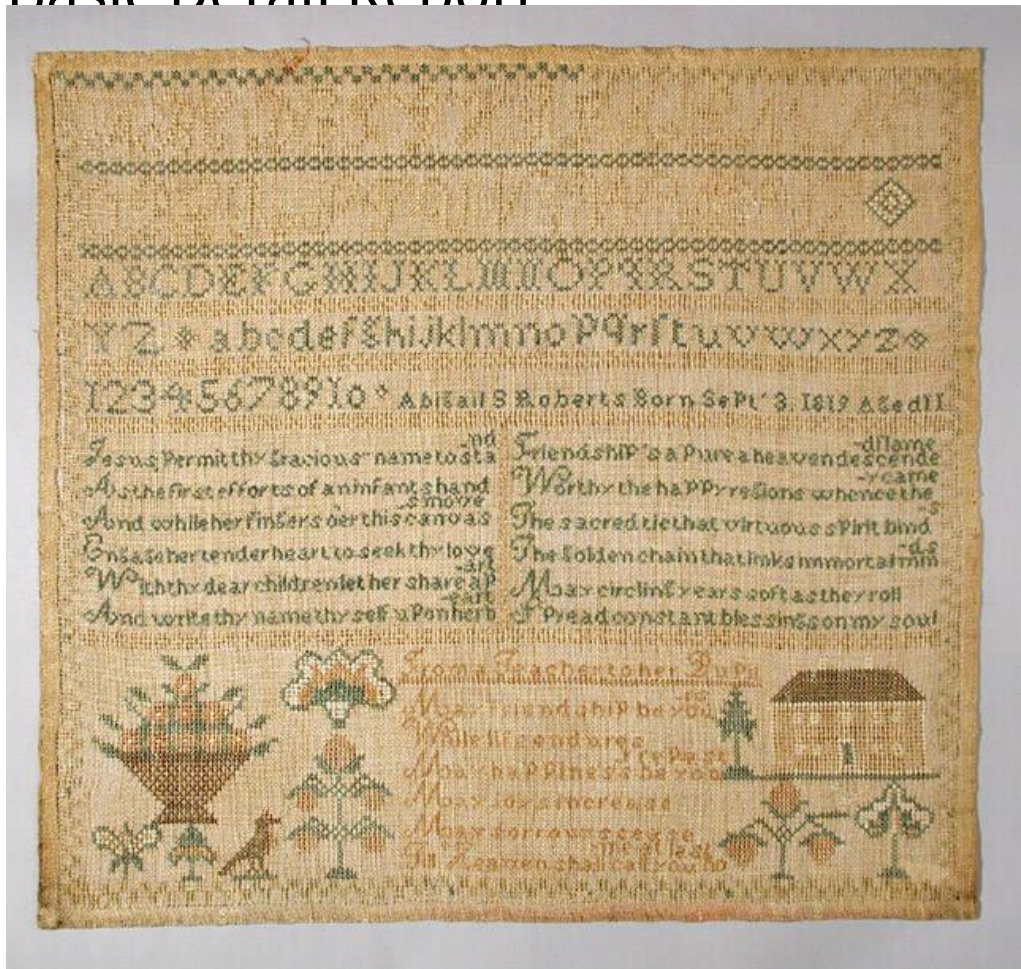 Basic Detail Report
ABCDEFGHIJKLMNOPQRSTUVWX
YZ abcdefghijklmnopqrſtuvwxyz
12345678910 Abigail S Roberts Born Sept 3 1819 Aged 11
Jesus Permit thy Gracious name to sta-nd
As the first efforts of an infants hand
And while her fingers oer this canvas-s move
Engage her tender heart to seek thy love
With thy dear children let her share a p-art
And write thy name thy self upon her h-eart
Friendship's a Pure a heavendescende-dflame
Worthy the happy regions whence the-ycame
The sacred tie that virtuous spirit bind-s
The Golden chain that links immortal min-ds
May circling years soft as they roll
Spread constant blessings on my soul
From a Teacher to her Pupil
May friendship be you-rs
While life endures
May happiness be you
May joys increase
May sorrows cease
Till Heaven shall call you ho